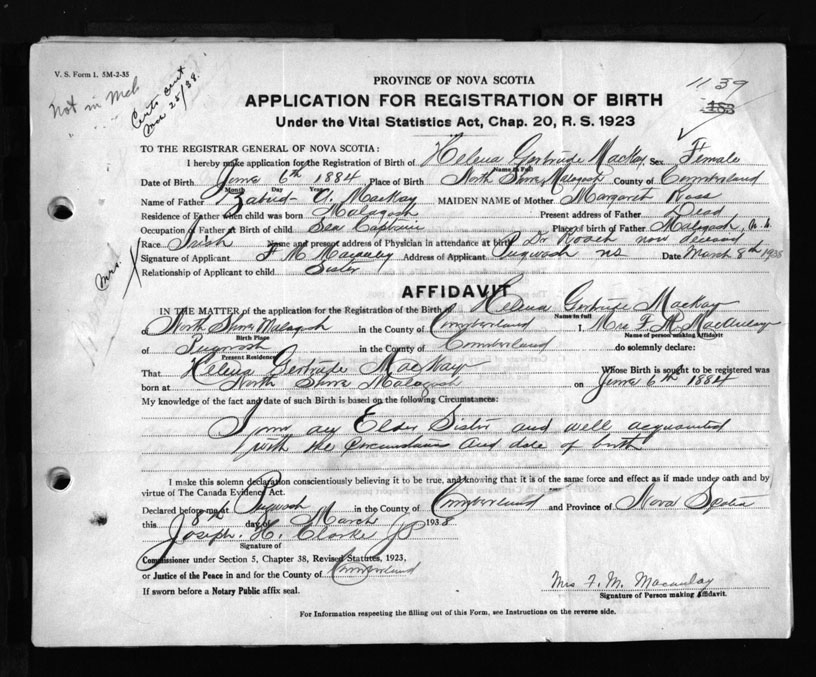 V. S. Form 1. 5M-2-35
Not in
Certs cert
25/38.
PROVINCE OF NOVA SCOTIA
1139
APPLICATION FOR REGISTRATION OF BIRTH
Under the Vital Statistics Act, Chap. 20, R. S. 1923
TO THE REGISTRAR GENERAL OF NOVA SCOTIA:
I hereby make application for the Registration of Birth of Helena Gertrude MacKay Sex Female
Name in Full
Date of Birth June 6th 1884 Place of Birth North Shore Malagash County of Cumberland
Month Day Year
Name of Father A. MacKay MAIDEN NAME of Mother Margaret Ross
Residence of Father when child was born Malagash Present address of Father Dead
Occupation of Father at Birth of child Sea Captain Place of birth of Father Malagash, N.S.
Race Irish Name and present address of Physician in attendance at birth Dr Roach now deceased
Signature of Applicant F M Macaulay Address of Applicant Pugwash NS Date March 8th 1938
Relationship of Applicant to child Sister
AFFIDAVIT
IN THE MATTER of the application for the Registration of the Birth of Helena Gertrude MacKay
Name in full
of North Shore Malagash in the County of Cumberland I, Mrs F. M. MacAulay
Birth Place Name of person making Affidavit
of Pugwash in the County of Cumberland do solemnly declare:
Present Residence
That Helena Gertrude MacKay Whose Birth is sought to be registered was
born at North Shore Malagash on June 6th 1884
My knowledge of the fact and date of such Birth is based on the following Circumstances:
I am an Elder Sister and well acquainted
with the circumstances and date of birth
I make this solemn declaration conscientiously believing it to be true, and knowing that it is of the same force and effect as if made under oath and by
virtue of The Canada Evidence Act.
Declared before me at Pugwash in the County of Cumberland and Province of Nova Scotia
this 8th day of March 1938
Joseph H. Clarke JP
Signature of
Commissioner under Section 5, Chapter 38, Revised Statutes, 1923,
or Justice of the Peace in and for the County of Cumberland
If sworn before a Notary Public affix seal.
Mrs F. M. Macaulay
Signature of Person making Affidavit.
For Information respecting the filling out of this Form, see Instructions on the reverse side.